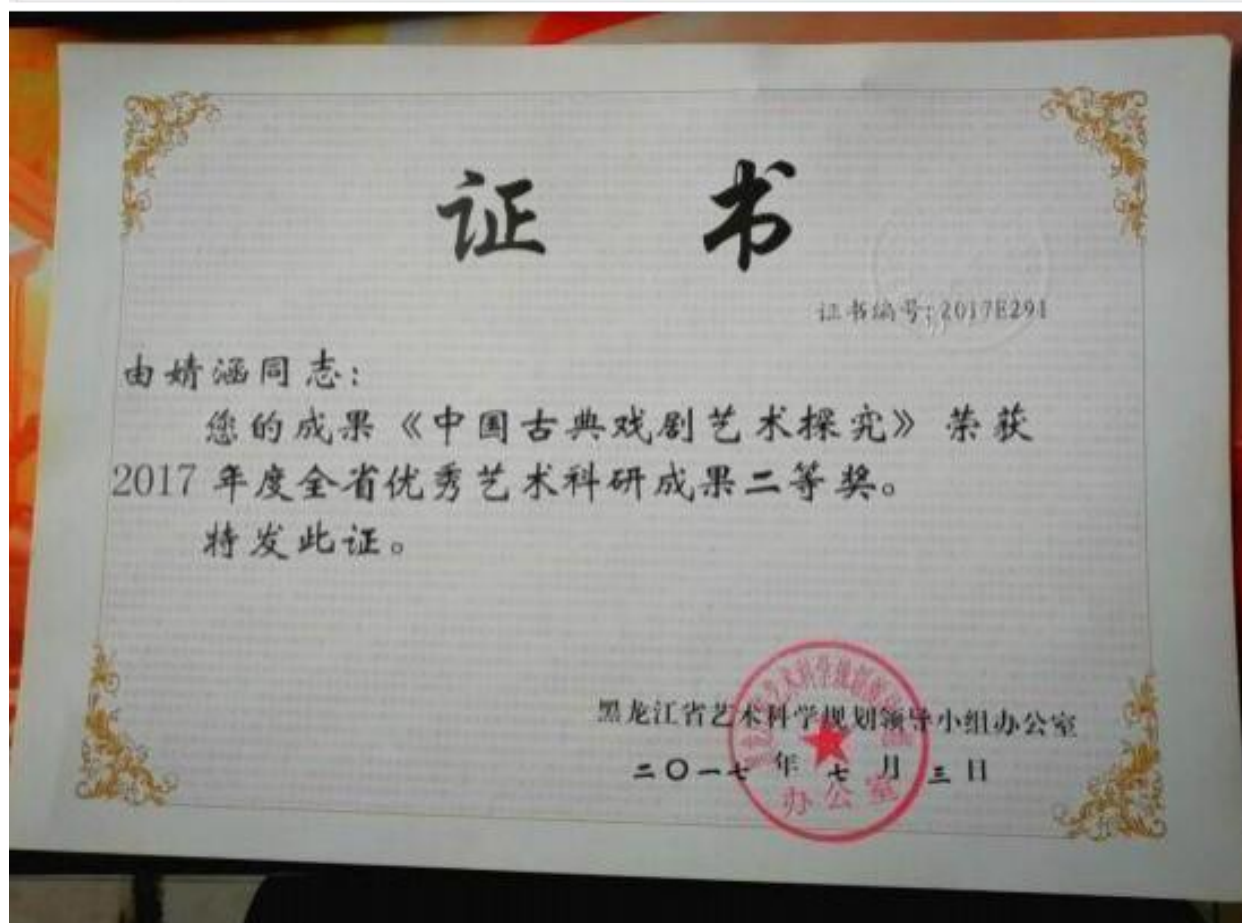 证 书
证书编号:2017E291
由婧涵同志:
您的成果《中国古典戏剧艺术探究》荣获
2017年度全省优秀艺术科研成果二等奖。
特发此证。
黑龙江省艺术科学规划领导小组办公室
二〇一七年七月三日
办公室